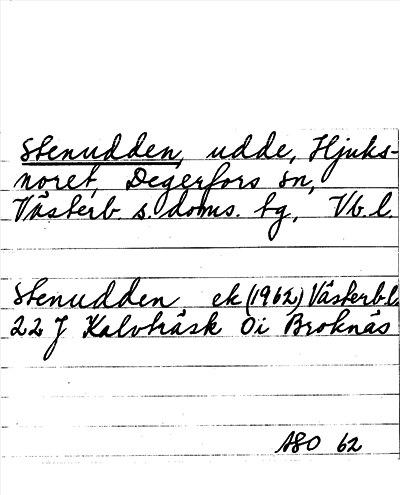 Stenudden, udde, Hjuks-
noret, Degerfors sn,
Västerb. s. doms. tg, Vb. l.
Stenudden ek (1962) Västerb.l.
22 J Kalvträsk Oi Broknäs
ABO 62